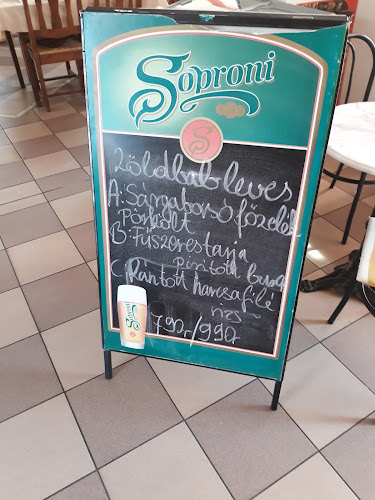 Soproni
S
Zöldbableves
A: Sárgaborsó főzelék
Pörkölt
B: Fűszerestarja
Pirított burg
C Rántott harcsafilé
rizs
790,-/990
Soproni